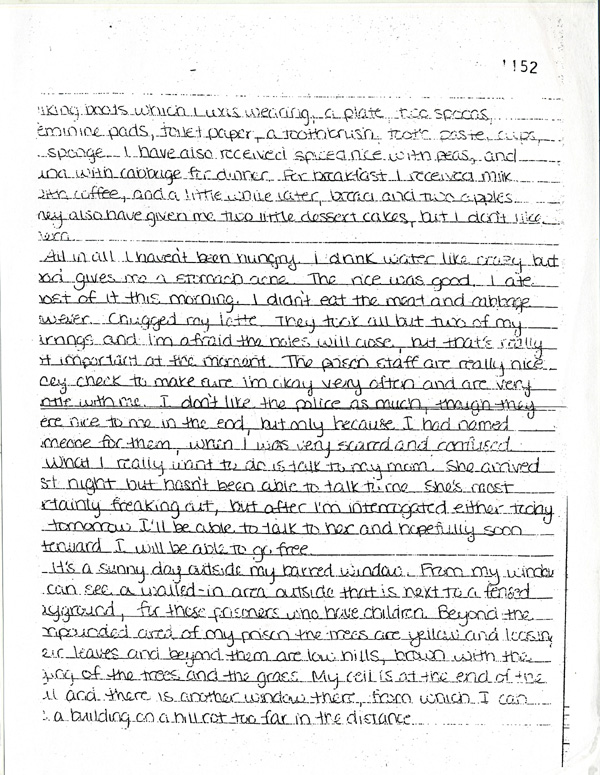 1152
iking boots which I was wearing, a plate, two spoons,
eminine pads, toilet paper, a toothbrush, tooth paste, cups,
sponge. I have also received spiced rice with peas, and
with cabbage for dinner. For breakfast I received milk
ith coffee, and a little while later, bread and two apples.
hey also have given me two little dessert cakes, but I don't like
hem.
All in all I haven't been hungry. I drink water like crazy but
gives me a stomach ache. The rice was good. I ate
ost of it this morning. I didn't eat the meat and cabbage
wever. Chugged my latte. They took all but two of my
rrings and I'm afraid the holes will close, but that's really
t important at the moment. The prison staff are really nice.
ey check to make sure I'm okay very often and are very
ntle with me. I don't like the police as much, though they
ere nice to me in the end, but only because I had named
meone for them, when I was very scared and confused.
What I really want to do is talk to my mom. She arrived
st night but hasn't been able to talk to me. She's most
rtainly freaking out, but after I'm interrogated either today
tomorrow I'll be able to talk to her and hopefully soon
terward I will be able to go free.
It's a sunny day outside my barred window. From my window
can see a walled-in area outside that is next to a fensed
ayground, for those prisoners who have children. Beyond the
mpounded area of my prison the trees are yellow and loosing
eir leaves and beyond them are low hills, brown with the
ing of the trees and the grass. My cell is at the end of the
ll and there is another window there, from which I can
a building on a hill not too far in the distance.